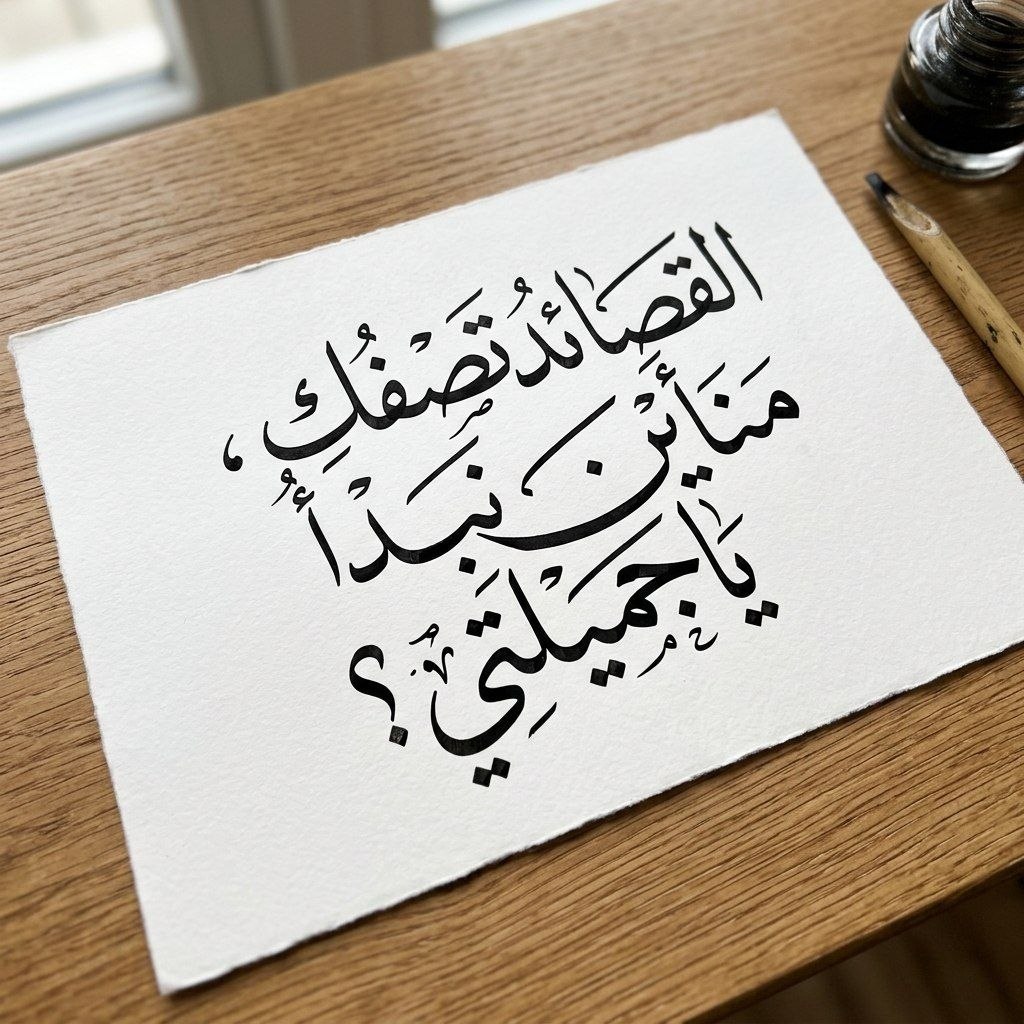 القصائدُ تَصْفُكِ،
مَنَأَيْنَ نَبَدَأُ
يَا جَميْلَتِي؟